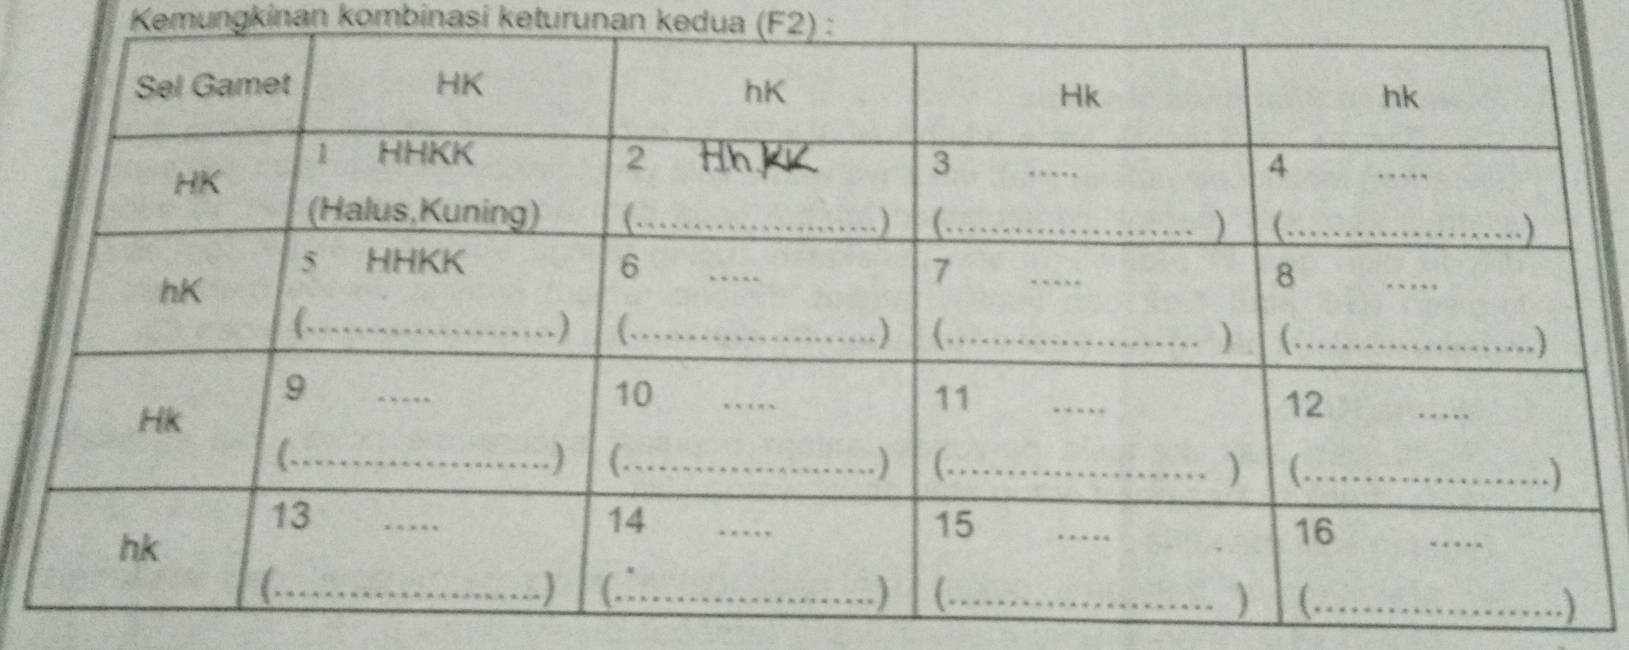 Kemungkinan kombinasi keturunan kedua (F2) :
Sel Gamet HK hK Hk hk
HK 1 HHKK 2 Hh KK 3 ..... 4 .....
(Halus,Kuning) (.....................) (......................) (.....................)
hK 5 HHKK 6 ..... 7 ..... 8 .....
(......................) (......................) (......................) (.....................)
Hk 9 ..... 10 ..... 11 ..... 12 .....
(.......................) (......................) (.......................) (......................)
hk 13 ..... 14 ..... 15 ..... 16 .....
(.......................) (.......................) (.......................) (......................)